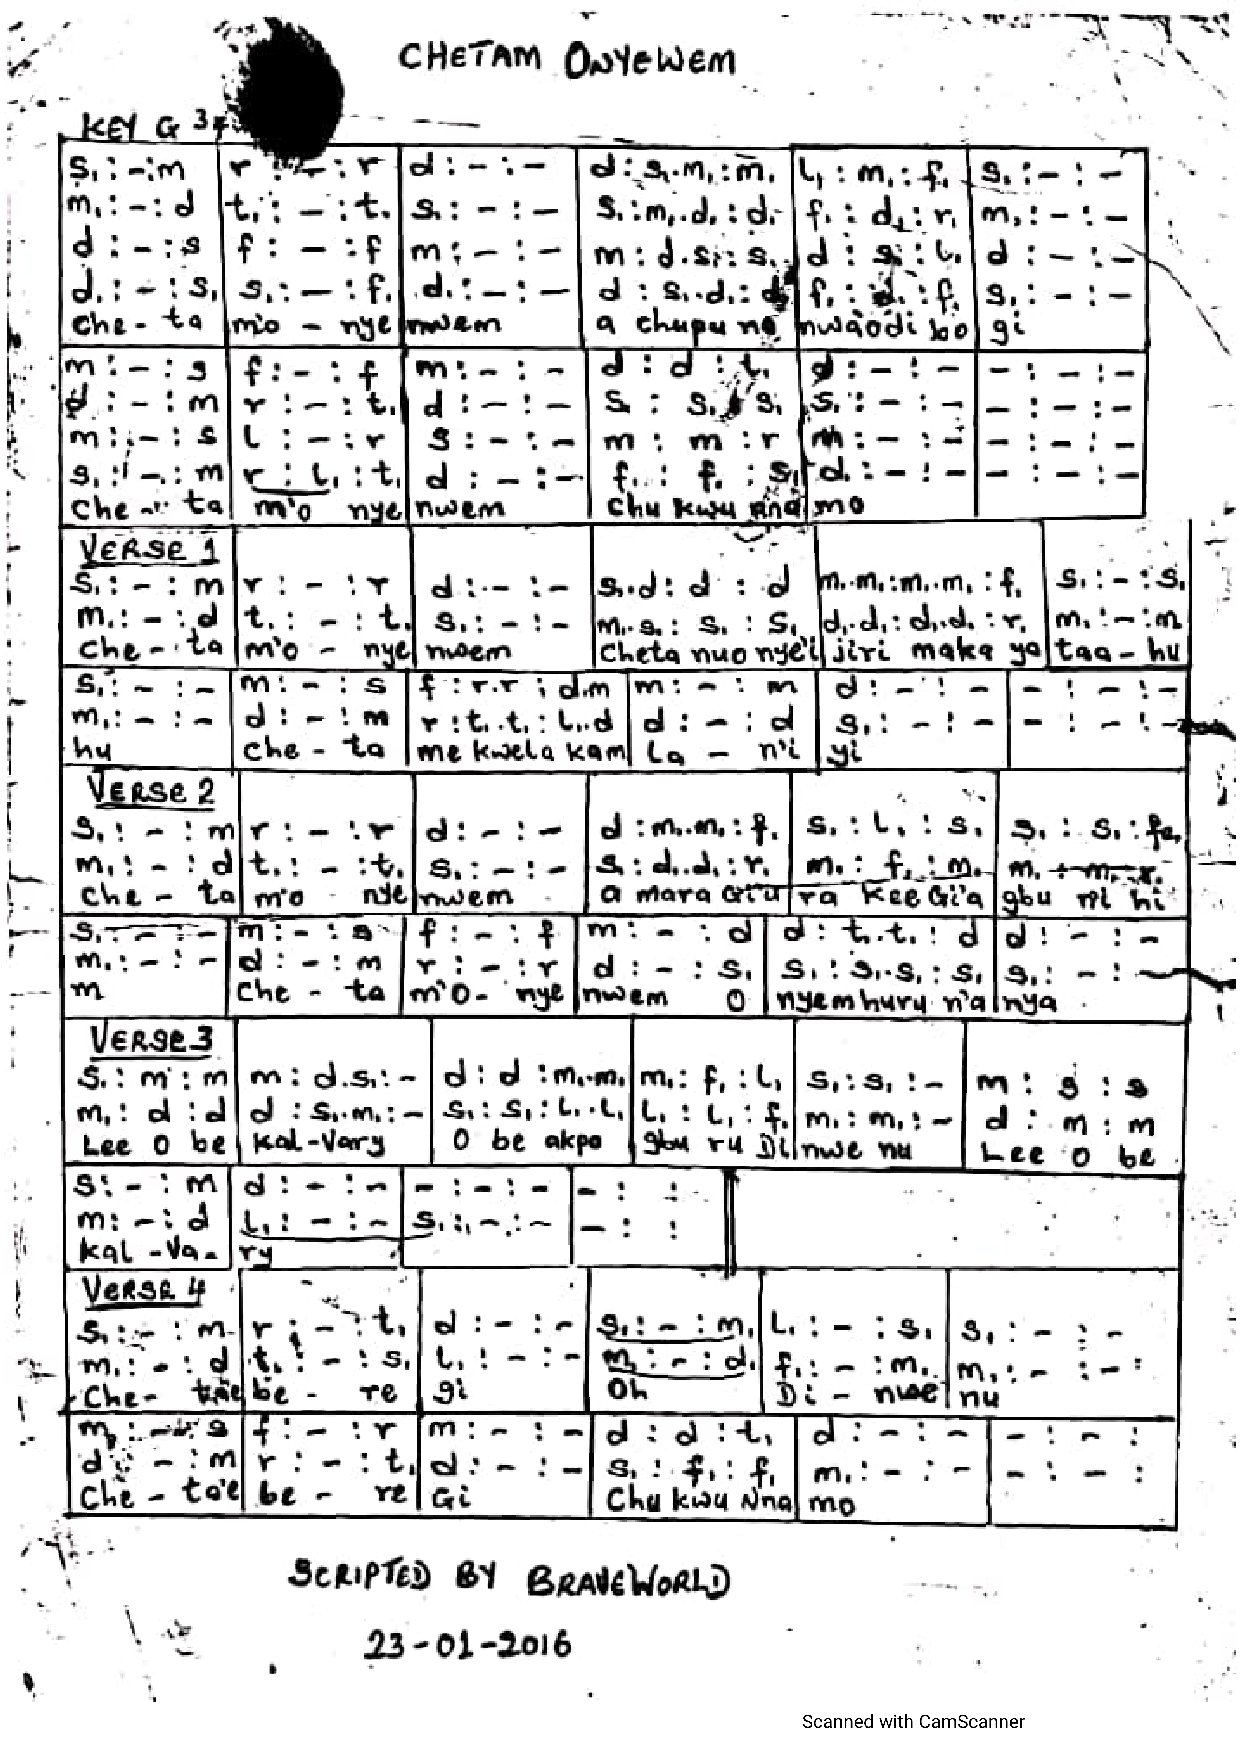 CHETAM ONYEWEM
KEY G 3
s,:-:m | r:-:r | d:-:- | d:s,.m,:m, | l,:m,:f, | s,:-:-
m,:-:d | t,:-:t, | s,:-:- | s,:m,.d,:d, | f,:d,:r, | m,:-:-
d:-:s | f:-:f | m:-:- | m:d.s,:s, | d:s,:l, | d:-:-
d,:-:s, | s,:-:f, | d,:-:- | d:s,.d,:d, | f,:d,:f, | s,:-:-
Che-ta | m'o-nye | nwem | a chupu na | nwaodi bo | gi
m:-:s | f:-:f | m:-:- | d:d:t, | d:-:- | -:-:-
d:-:m | r:-:t, | d:-:- | s:s,:s, | s,:-:- | -:-:-
m:-:s | l:-:r | s:-:- | m:m:r | m:-:- | -:-:-
s,:-:m | r:l,:t, | d:-:- | f,:f,:s, | d,:-:- | -:-:-
Che-ta | m'o nye | nwem | Chu kwu nna | mo
VERSE 1
s,:-:m | r:-:r | d:-:- | s,.d:d:d | m,.m,:m,.m,:f, | s,:-:s,
m,:-:d | t,:-:t, | s,:-:- | m,.s,:s,:s, | d,.d,:d,.d,:r, | m,:-:m
Che-ta | m'o-nye | nwem | Cheta nuo nye'i | jiri maka ya | taa-hu
s,:-:- | m:-:s | f:r.r:d.m | m:-:m | d:-:- | -:-:-
m,:-:- | d:-:m | r:t,.t,:l,.d | d:-:d | s,:-:- | -:-:-
hu | che-ta | me kwela kam | La-n'i | yi
VERSE 2
s,:-:m | r:-:r | d:-:- | d:m,.m,:f, | s,:l,:s, | s,:s,:fe,
m,:-:d | t,:-:t, | s,:-:- | s:d,.d,:r, | m,:f,:m, | m,:m,:r,
Che-ta | m'o nye | nwem | a mara Gi'u | ra kee Gi'a | gbu ni hi
s,:-:- | m:-:s | f:-:f | m:-:d | d:t,.t,:d | d:-:-
m,:-:- | d:-:m | r:-:r | d:-:s, | s,:s,.s,:s, | s,:-:-
m | Che-ta | m'O-nye | nwem O | nyemhuru n'a | nya
VERSE 3
s,:m:m | m:d.s,:- | d:d:m,.m, | m,:f,:l, | s,:s,:- | m:s:s
m,:d:d | d:s,.m,:- | s,:s,:l,.l, | l,:l,:f, | m,:m,:- | d:m:m
Lee O be | Kal-Vary | O be akpo | gbu ru Di | nwe nu | Lee O be
s:-:m | d:-:- | -:-:- | -: :
m:-:d | l,:-:- | s,:-:- | -: :
Kal-Va- | ry
VERSE 4
s,:-:m | r:-:t, | d:-:- | s,:-:m, | l,:-:s, | s,:-:-
m,:-:d | t,:-:s, | l,:-:- | m,:-:d, | f,:-:m, | m,:-:-
Che-tae | be-re | gi | Oh | Di-nwe | nu
m:-:s | f:-:r | m:-:- | d:d:t, | d:-:- | -:-:
d:-:m | r:-:t, | d:-:- | s,:f,:f, | m,:-:- | -:-:
Che-ta'e | be-re | Gi | Chu kwu Nna | mo
SCRIPTED BY BRAVEWORLD
23-01-2016
Scanned with CamScanner